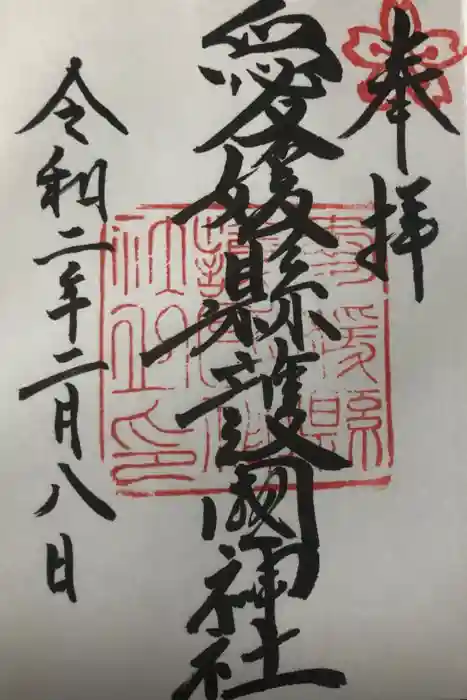 奉拝
愛媛縣護國神社
令和二年二月八日
愛媛縣護國神社印